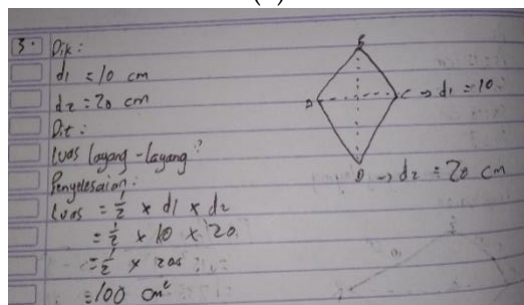 3. Dik :
d1 = 10 cm
d2 = 20 cm
Dit :
Luas layang-layang?
Penyelesaian :
Luas = 1/2 x d1 x d2
= 1/2 x 10 x 20
= 1/2 x 200
= 100 cm²
C → d1 = 10
D → d2 = 20 cm